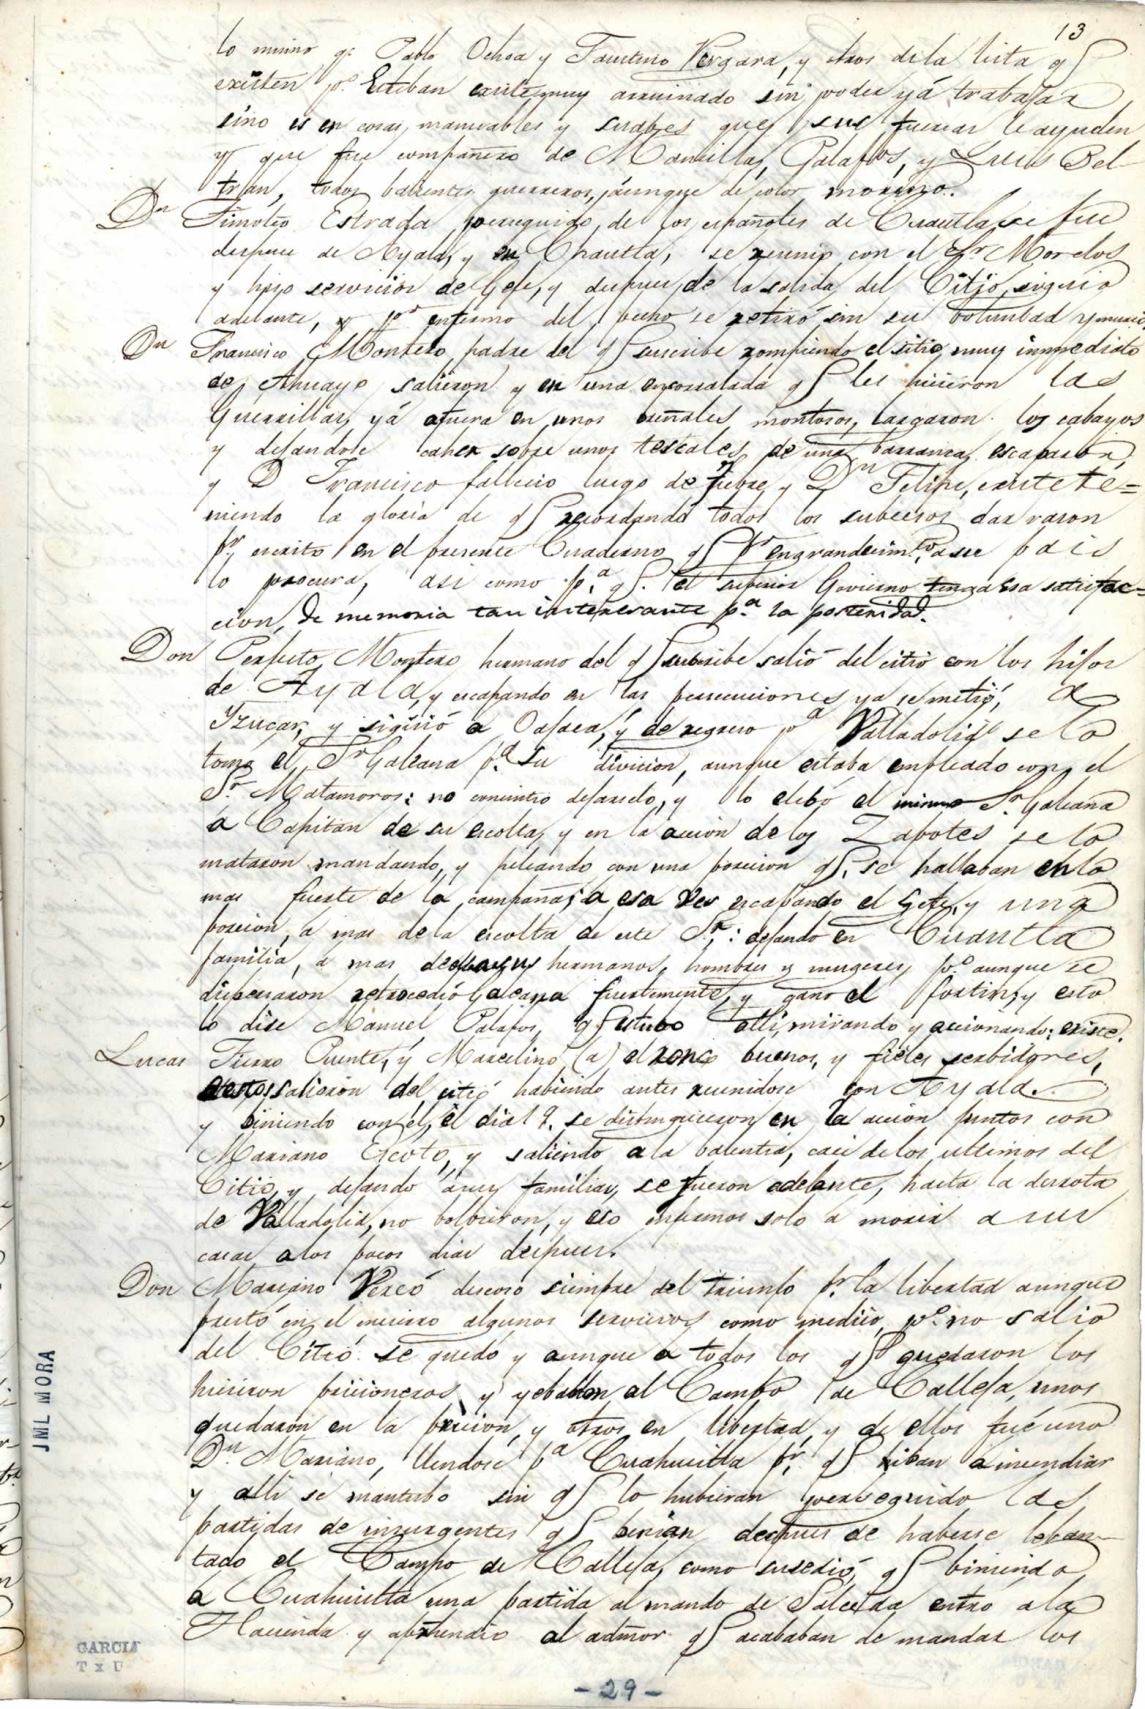 13
lo mismo qe Pablo Ochoa y Faustino Vergara, y otros de la lista q
existen po Esteban existe muy arruinado sin poder yá trabajar
sino es en cosas manuables y suabes que sus fuerzas le ayuden
y que fue compañero de Mansilla, Palafos, y Luis Bel
trán, todos balientes guerreros, aunque de color moreno.
Dn Timoteo Estrada perseguido de los españoles de Cuautla se fue
despues de Ayala, y en Chautla, se reunio con el Sr Morelos
y hizo servicios de Gefe, y despues de la salida del Citio, siguio
adelante, y pr enfermo del pecho se retiró sin su boluntad y murio
Dn Francisco Montero padre del q suscribe rompiendo el sitio muy inmediato
de Ahuayo salieron y en una encorralada q les hicieron las
Guerrillas, yá afuera en unos breñales montosos, largaron los cabayos
y dejandose caher sobre unos tescales de una barranca escaparon,
y D Francisco fallecio luego de fiebre, y Dn Felipe, existe te=
niendo la gloria de q recordando todos los subcesos dar rason
pr escrito en el presente Cuaderno q pr engrandecimto a su pais
lo procura, asi como pa q el superior Govierno tenga esa satisfac=
cion, de memoria tan interesante pa la posteridad.
Don Perfecto Montero hermano del q suscribe salió del citio con los hijos
de Ayala, y escapando en las persecuciones ya se metió, a
Yzucar, y siguió a Oajaca, y de regreso pa Valladolid se lo
tomo el Sr Galeana pa su divicion, aunque estaba empleado con el
Sr Matamoros: no concintio dejarselo, y lo elebó el mismo Sr Galeana
a Capitan de su escolta, y en la accion de los Zapotes se lo
mataron mandando, y peleando con una porcion q se hallaban en lo
mas fuerte de la campaña; a esa ves escapando el Gefe, y una
porcion, a mas de la escolta de este Sr: dejando en Cuautla
familia, a mas de sus hermanos, hombres y mugeres, po aunque se
dispersaron retrocedió Galeana fuertemente, y gano el fortin, y esto
lo dise Manuel Palafos, q estubo alli, mirando y accionando: existe.
Lucas Fierro Puente, y Marcelino (a) el ronco buenos, y fieles serbidores,
estos salieron del citio habiendo antes reunidose con Ayala.
y biniendo con él, el dia 19. se distinguieron en la accion juntos con
Mariano Escoto, y saliendo a la balentia, casi de los ultimos del
Citio, y dejando á sus familias, se fueron adelante, hasta la derrota
de Valladolid, no bolvieron, y eso enfermos solo a morir a sus
casas a los pocos dias despues.
Don Mariano Pereó deseoso siempre del triunfo pr la libertad aunque
prestó en el encierro algunos servicios como medico, po no salio
del Citio se quedó y aunque a todos los q quedaron los
hicieron pricioneros y yebaban al Campo de Calleja, unos
quedaron en la pricion, y otros en libertad, y de ellos fue uno
Dn Mariano, llendose pa Cuahuistla pr q iban a incendiar
y alli se mantubo sin q lo hubieran perseguido las
partidas de insurgentes q benian despues de haberse leban-
tado el Campo de Calleja, como susedió, q biniendo
a Cuahuistla una partida al mando de Salceda entro a la
Hacienda y aprendio al admor q acababan de mandar los
JML MORA
GARCIA
T x U
- 29 -